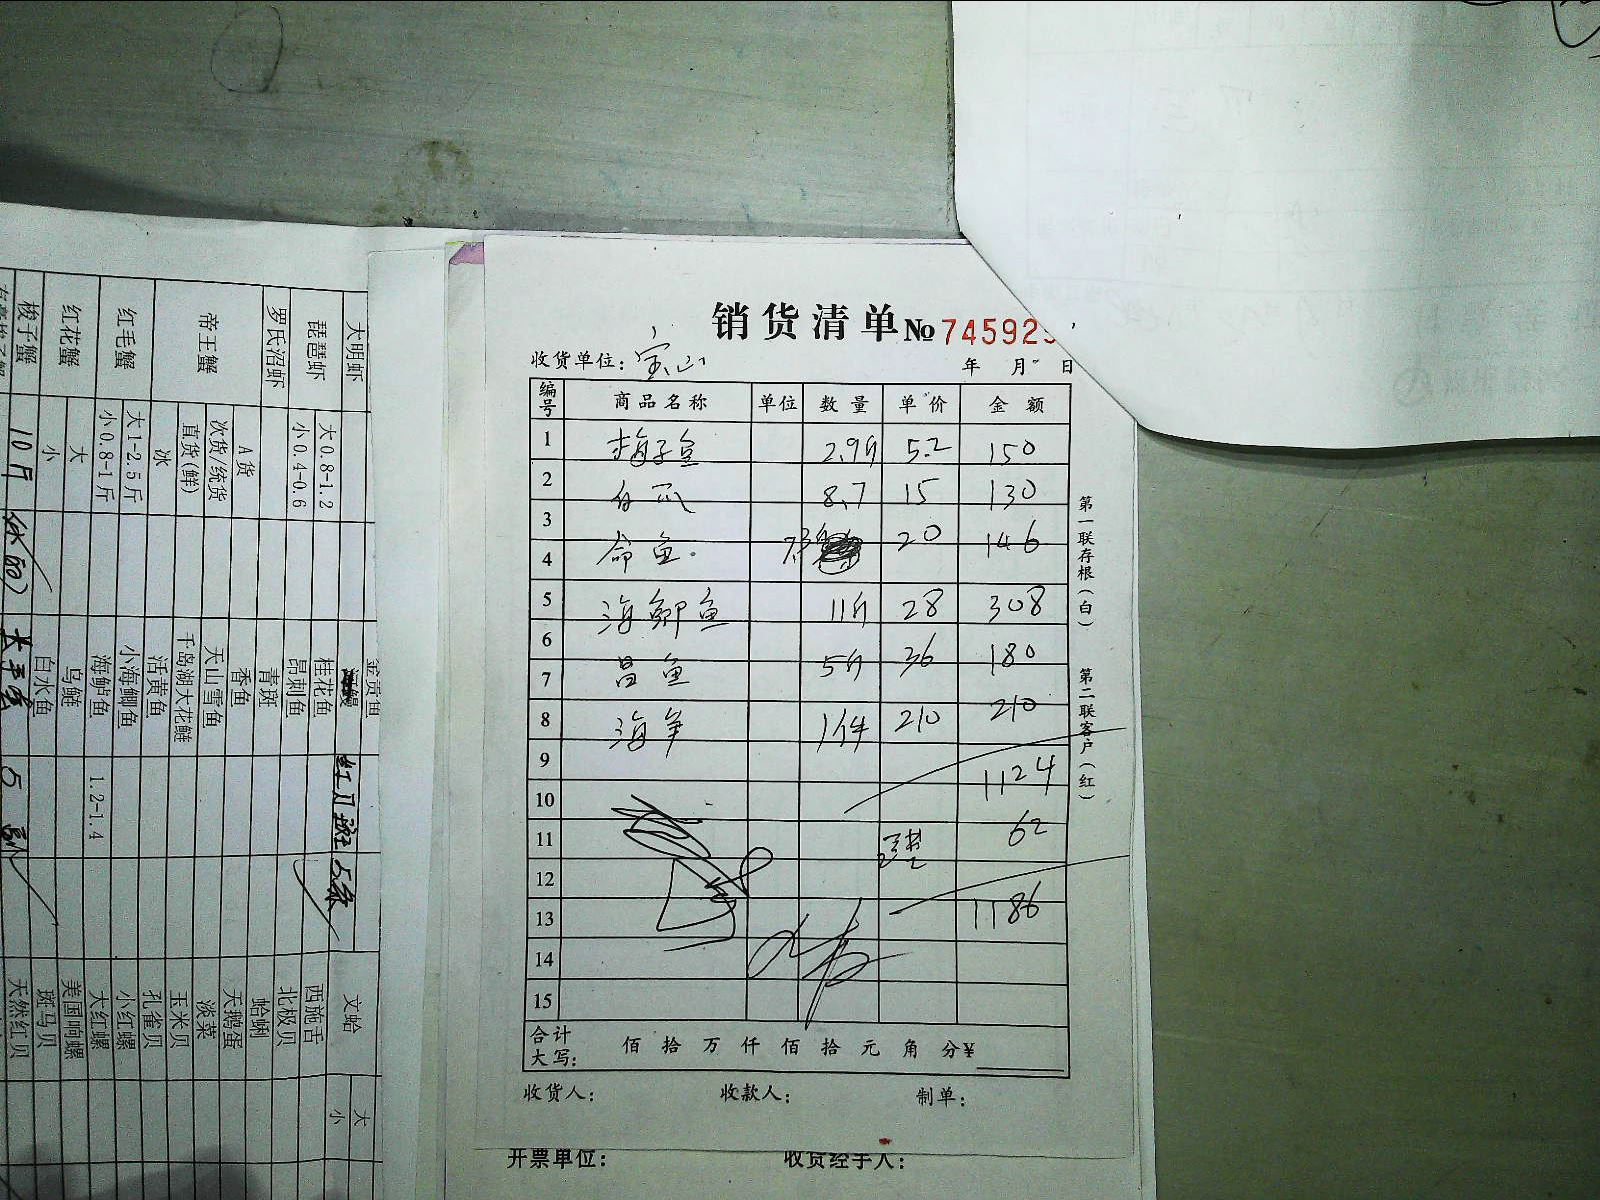 销货清单 № 745929
收货单位: 宝山 年 月 日
编号 商品名称 单位 数量 单价 金额
1 梅子鱼 2.9斤 52 150
2 白爪 8.7 15 130
3
4 鱼 7.3 20 146
5 海鲫鱼 11斤 28 308
6
7 昌鱼 5斤 36 180
8 海笋 1件 210 210
9 1124
10
11 62
12
13 1186
14
15
合计大写: 佰 拾 万 仟 佰 拾 元 角 分¥
收货人: 收款人: 制单:
开票单位: 收货经手人:
第一联存根(白) 第二联客户(红)
大明虾
琵琶虾 大0.8-1.2 小0.4-0.6
罗氏沼虾
帝王蟹 A货 次货/统货 直货(鲜) 冰
红毛蟹 大1-2.5斤 小0.8-1斤
红花蟹 大 小
梭子蟹 10斤
桂花鱼
昂刺鱼
青斑
香鱼
天山雪鱼
千岛湖大花鲢
活黄鱼
小海鲫鱼
海鲈鱼 1.2-1.4
乌鲢
白水鱼
5条
文蛤 大 小
西施舌
北极贝
蛤蜊
天鹅蛋
淡菜
玉米贝
孔雀贝
小红螺
大红螺
美国响螺
斑马贝
天然红贝